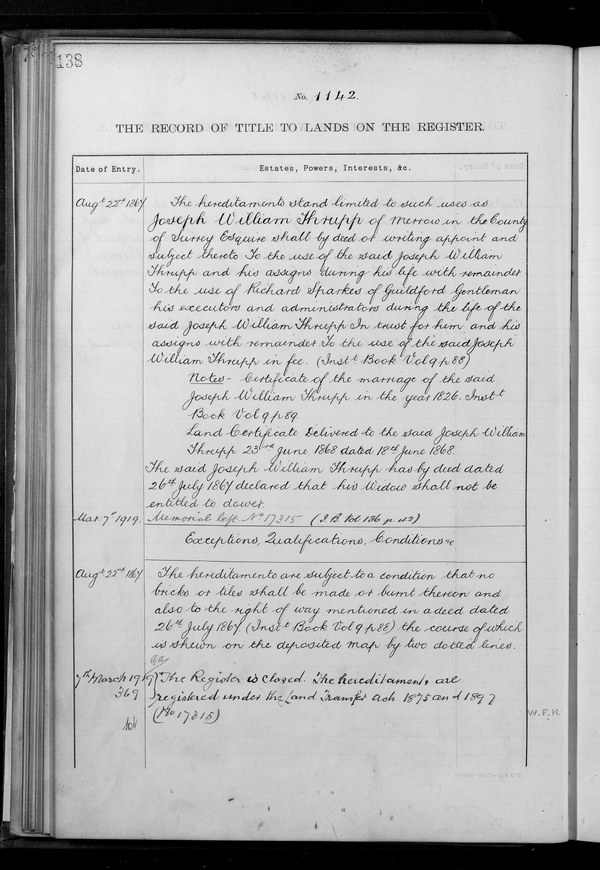 138
No. 1142.
THE RECORD OF TITLE TO LANDS ON THE REGISTER.
Date of Entry. Estates, Powers, Interests, &c.
Augt 22nd 1867 The hereditaments stand limited to such uses as
Joseph William Thrupp of Merrow in the County
of Surrey Esquire shall by deed or writing appoint and
subject thereto To the use of the said Joseph William
Thrupp and his assigns during his life with remainder
To the use of Richard Sparkes of Guildford Gentleman
his executors and administrators during the life of the
said Joseph William Thrupp In trust for him and his
assigns with remainder To the use of the said Joseph
William Thrupp in fee. (Instt Book Vol 9 p 88)
Notes - Certificate of the marriage of the said
Joseph William Thrupp in the year 1826. Instt
Book Vol 9 p 89
Land Certificate Delivered to the said Joseph William
Thrupp 23rd June 1868 dated 18th June 1868.
The said Joseph William Thrupp has by deed dated
26th July 1867 declared that his Widow shall not be
entitled to dower.
Mar. 7th 1919. Memorial left No 17315 (I B Vol 136 p 42)
Exceptions, Qualifications, Conditions &c
Augt 22nd 1867 The hereditaments are subject to a condition that no
bricks or tiles shall be made or burnt thereon and
also to the right of way mentioned in a deed dated
26th July 1867. (Instt Book Vol 9 p 88) the course of which
is shewn on the deposited Map by two dotted lines.
7th March 1919 The Register is closed. The hereditaments are
369 registered under the Land Transfer Acts 1875 and 1897
(No 17315)
W.F.H.